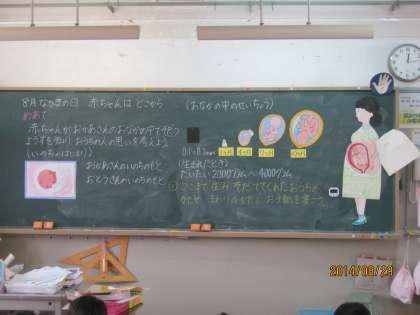 8月 なかまの日 赤ちゃんは どこから
めあて
赤ちゃんがおかあさんのおなかの中でそだつ
ようすを知り おうちの人の思いを考えよう
(いのちのはじまり)
おかあさんのいのちのもと
おとうさんのいのちのもと
(おなかの中のせいちょう)
(生まれたとき)
だいたい2000グラム〜4000グラム
ここまで 生み そだててくれた おうちの
かたや まわりのかたに お手紙を書こう。
2014/08/29